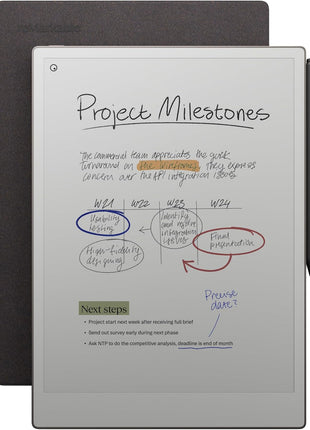 reMarkable
Project Milestones
The commercial team appreciates the quick
turnaround on the wireframes, they express
concern over the API integration issues
W21 W22 W23 W24
Usability
testing
Identify
and resolve
integration
issues
Final
presentation
High-fidelity
designing
Precise
date?
Next steps
• Project start next week after receiving full brief
• Send out survey early during next phase
• Ask NTP to do the competitive analysis, deadline is end of month